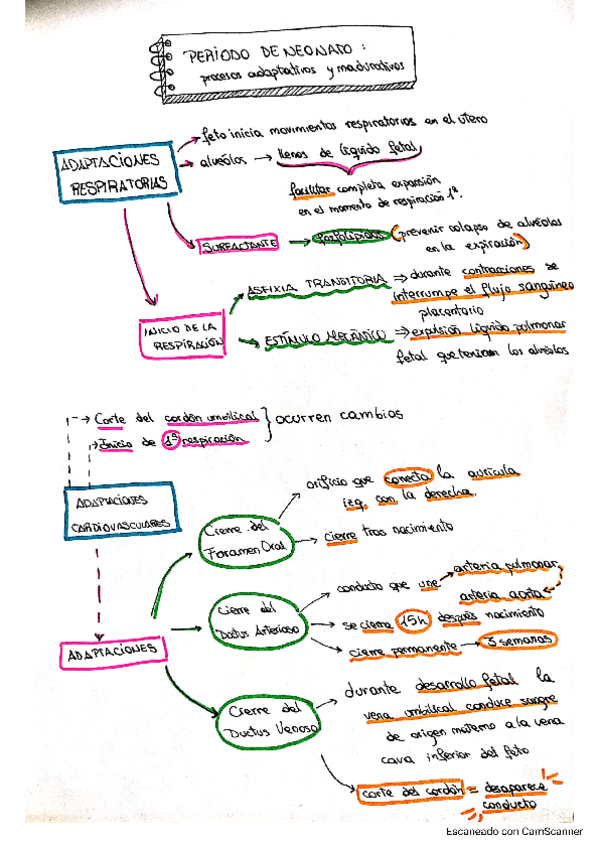 PERÍODO DE NEONATO :
procesos adaptativos y madurativos
feto inicia movimientos respiratorios en el útero
ADAPTACIONES
RESPIRATORIAS
alvéolos → llenos de líquido fetal
facilitar completa expansión
en el momento de respiración 1ª.
SURFACTANTE → fosfolípidos (prevenir colapso de alvéolos
en la expiración)
INICIO DE LA
RESPIRACIÓN
ASFIXIA TRANSITORIA ⇒ durante contracciones se
interrumpe el flujo sanguíneo
placentario
ESTÍMULO MECÁNICO ⇒ expulsión líquido pulmonar
fetal que tenían los alvéolos
→ Corte del cordón umbilical } ocurren cambios
→ Inicio de 1ª respiración
ADAPTACIONES
CARDIOVASCULARES
ADAPTACIONES
Cierre del
Foramen Oral
orificio que conecta la aurícula
izq. con la derecha.
cierre tras nacimiento
Cierre del
Ductus Arterioso
conducto que une → arteria pulmonar
arteria aorta
se cierra 15h después nacimiento
cierre permanente → 3 semanas
Cierre del
Ductus Venoso
durante desarrollo fetal la
vena umbilical conduce sangre
de origen materno a la vena
cava inferior del feto
corte del cordón = desaparece
conducto
Escaneado con CamScanner